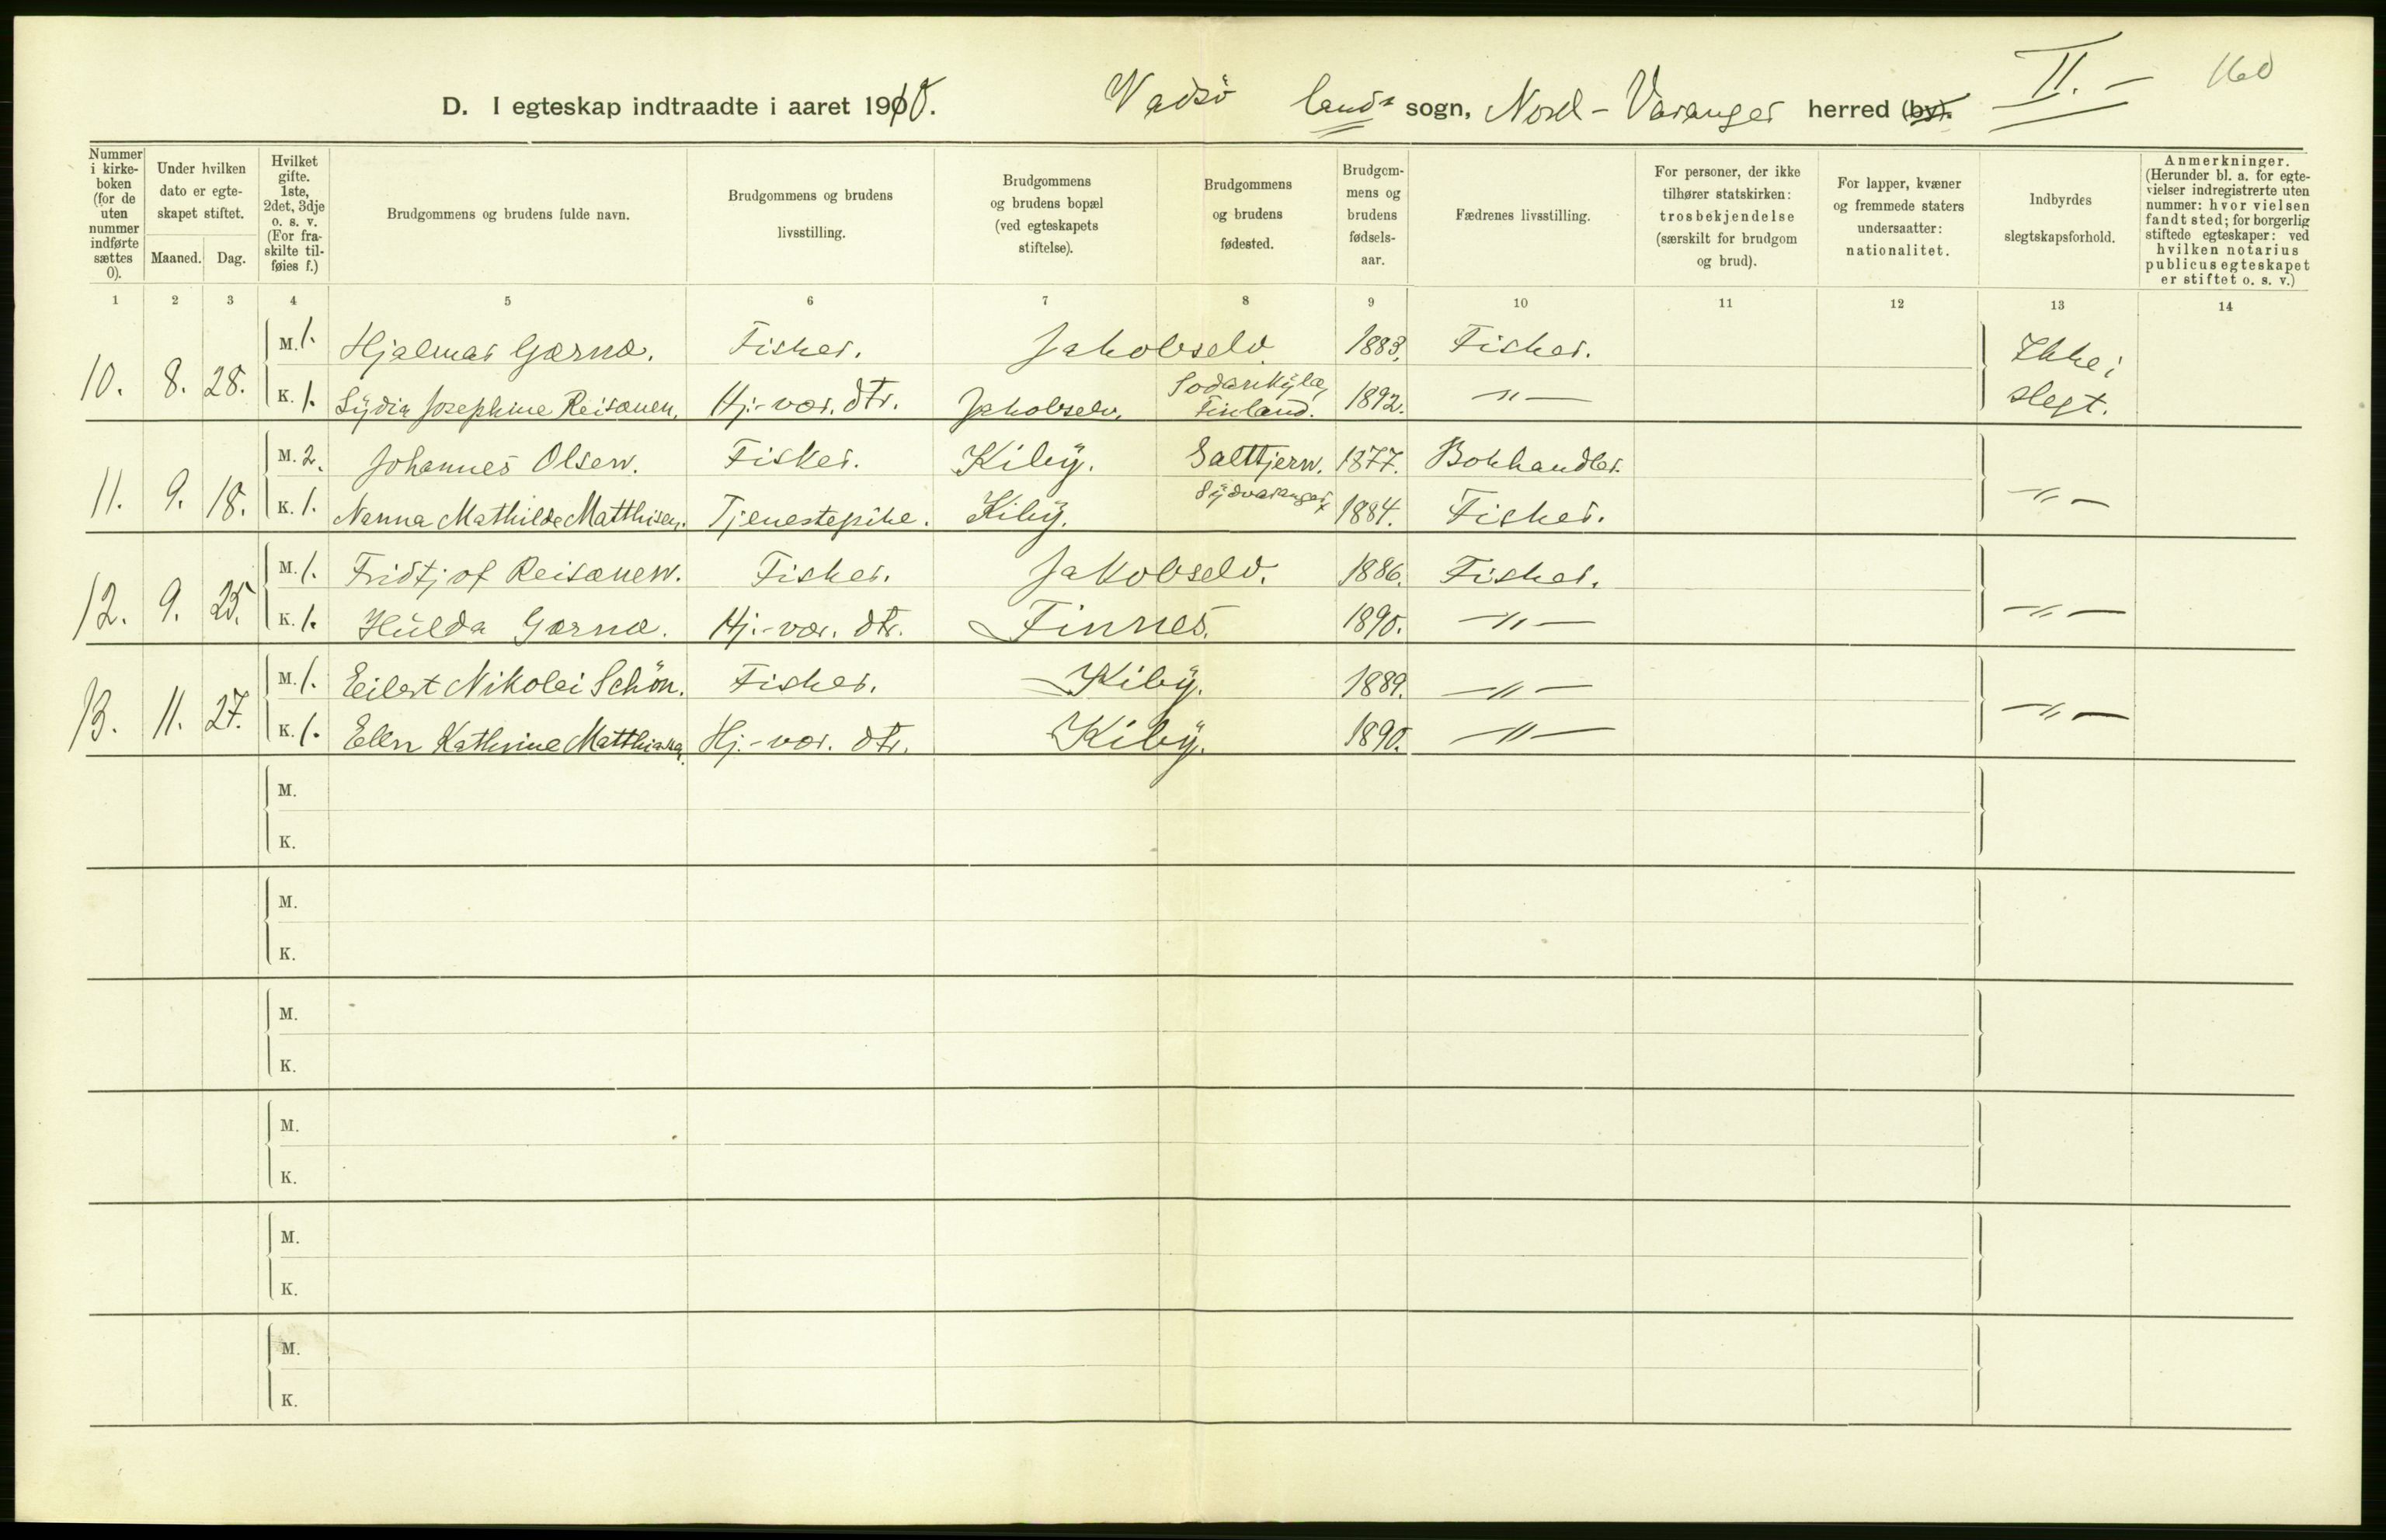 II. - 160
D. I egteskap indtraadte i aaret 1910. Vadsö lands sogn, Nord-Varanger herred (by).
Nummer i kirkeboken (for de uten nummer indførte sættes 0).
Under hvilken dato er egteskapet stiftet.
Maaned. Dag.
Hvilket gifte. 1ste, 2det, 3dje o. s. v. (For fraskilte tilføies f.)
Brudgommens og brudens fulde navn.
Brudgommens og brudens livsstilling.
Brudgommens og brudens bopæl (ved egteskapets stiftelse).
Brudgommens og brudens fødested.
Brudgommens og brudens fødselsaar.
Fædrenes livsstilling.
For personer, der ikke tilhører statskirken: trosbekjendelse (særskilt for brudgom og brud).
For lapper, kvæner og fremmede staters undersaatter: nationalitet.
Indbyrdes slegtskapsforhold.
Anmerkninger. (Herunder bl. a. for egtevielser indregistrerte uten nummer: hvor vielsen fandt sted; for borgerlig stiftede egteskaper: ved hvilken notarius publicus egteskapet er stiftet o. s. v.)
1 2 3 4 5 6 7 8 9 10 11 12 13 14
10. 8. 28. M. 1. Hjalmar Gærnæ. Fisker. Jakobselv. 1883. Fisker. Ikke i slegt.
K. 1. Lydia Josephine Reisænen. Hj.-vær. dtr. Jakobselv. Sodankylæ, Finland. 1892. -"-
11. 9. 18. M. 2. Johannes Olsen. Fisker. Kiby. Salttjern. 1877. Bokhandler. -"-
K. 1. Nanna Mathilde Matthisen. Tjenestepike. Kiby. Sydvaranger, 1884. Fisker.
12. 9. 25. M. 1. Fridtjof Reisænen. Fisker. Jakobselv. 1886. Fisker. -"-
K. 1. Hulda Gærnæ. Hj.-vær. dtr. Finnes. 1890. -"-
13. 11. 27. M. 1. Eilert Nikolai Schön. Fisker. Kiby. 1889. -"- -"-
K. 1. Ellen Kathrine Hj.-vær. dtr. Kiby. 1890. -"-
M.
K.
M.
K.
M.
K.
M.
K.
M.
K.
M.
K.